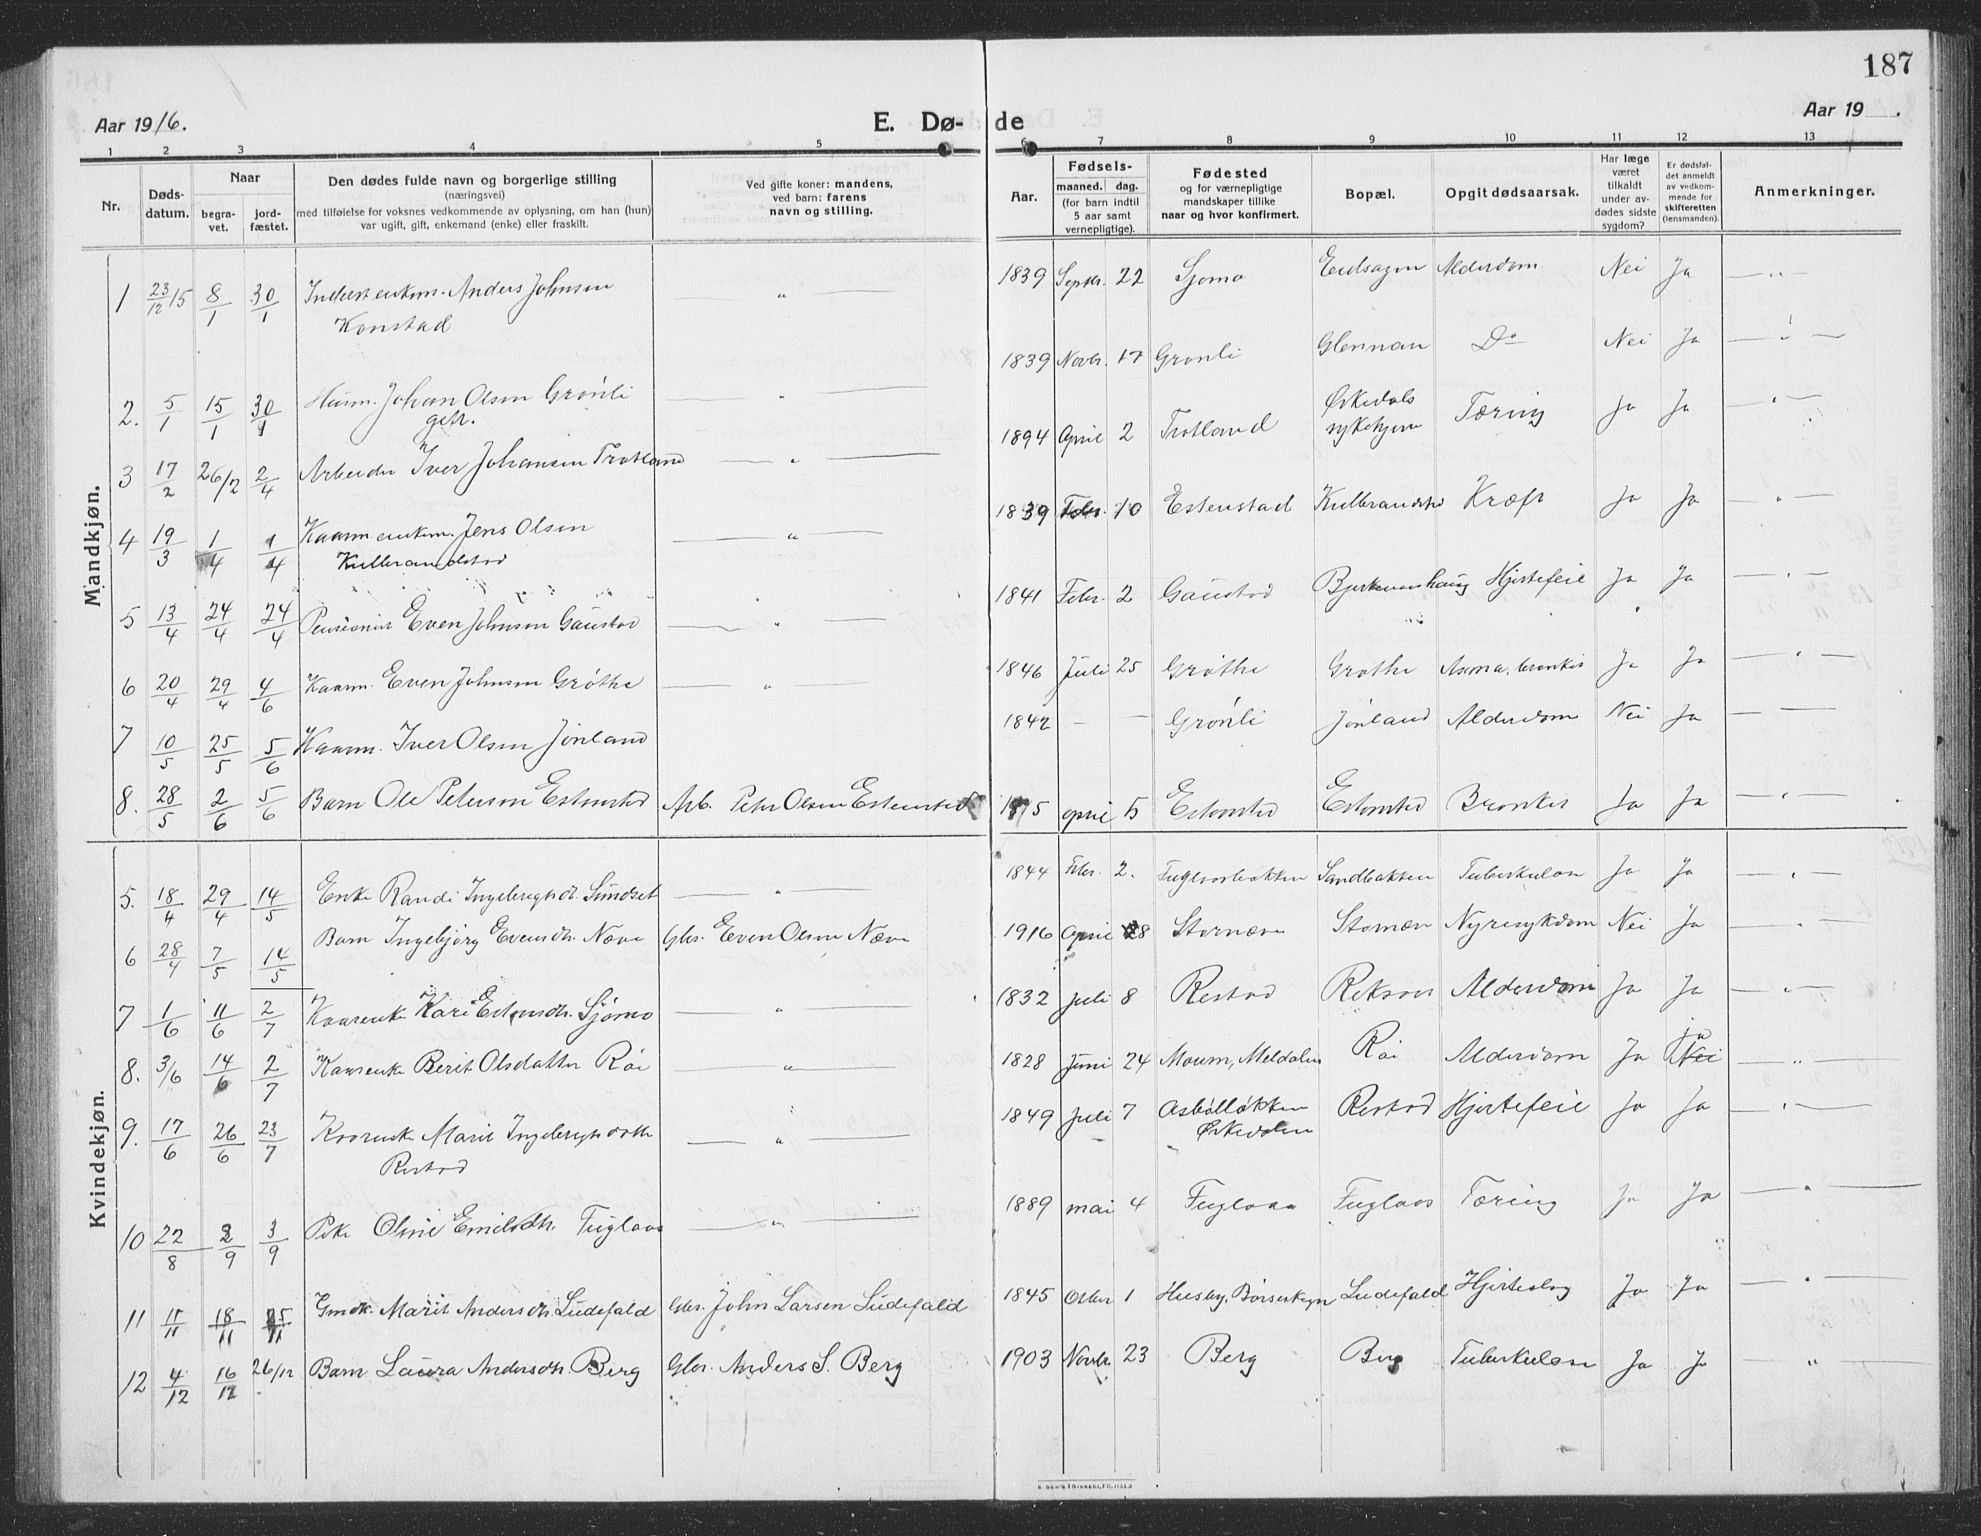 187
Aar 1916.
E. Dø-de
Aar 19 .
1 2 3 4 5 6 7 8 9 10 11 12 13
Nr.
Døds-datum.
Naar
begra-vet.
jord-fæstet.
Den dødes fulde navn og borgerlige stilling
(næringsvei)
med tilføielse for voksnes vedkommende av oplysning, om han (hun)
var ugift, gift, enkemand (enke) eller fraskilt.
Ved gifte koner: mandens,
ved barn: farens
navn og stilling.
Aar.
Fødsels-
maaned. dag.
(for barn indtil
5 aar samt
vernepligtige).
Fødested
og for værnepligtige
mandskaper tillike
naar og hvor konfirmert.
Bopæl.
Opgit dødsaarsak.
Har læge
været
tilkaldt
under av-
dødes sidste
sygdom?
Er dødsfal-
det anmeldt
av vedkom-
mende for
skifteretten
(lensmanden).
Anmerkninger.
Mandkjøn.
1 23/12 15 8/1 30/1 Inderst enkem. Anders Johnsen — " — 1839 Septbr. 22 Sjømo Eidsagen Alderdom Nei Ja — " —
Konstad
2. 5/1 15/1 30/1 Husm. Johan Olsen Grønli — " — 1839 Novbr. 17 Grønli Glennan Do Nei Ja — " —
gift.
3 17/2 26/2 2/4 Arbeider Iver Johansen Trotland — " — 1894 April 2 Trotland Ørkedals sykehjem Tæring Ja Ja — " —
4 19/3 1/4 1/4 Kaarm enkem. Jens Olsen — " — 1839 Febr. 10 Estenstad Kulbrandstad Kræft Ja Ja — " —
Kulbrandstad
5 13/4 24/4 24/4 Pensionist Even Johnsen Gaustad — " — 1841 Febr. 2 Gaustad Bjerkenhaug Hjertefeil Ja Ja — " —
6 20/4 29/4 4/6 Kaarm. Even Johnsen Grøthe — " — 1846 Juli 25 Grøthe Grøthe Asma, bronkit Ja Ja — " —
7 10/5 25/5 5/6 Kaarm. Iver Olsen Jønland 1842 — — Grønli Jønland Alderdom Nei Ja — —
8. 28/5 2/6 5/6 Barn Ole Petersen Estenstad Arb. Peter Olsen Estenstad 1915 april 5 Estenstad Estenstad Bronkit Ja Ja — " —
Kvindekjøn.
5. 18/4 29/4 14/5 Enke Randi Ingebrigtsdt. Sundset — " — 1844 Febr. 2. Fuglaasbakken Sandbakken Tuberkulose Ja Ja — " —
6 28/4 7/5 14/5 Barn Ingebjørg Evensdt. Næve Gbr. Even Olsen Næve 1916 April 28 Stornæve Stornæve Nyresykdom Nei Ja "
7 1/6 11/6 2/7 Kaarenke Kari Estensdt. Sjømo — " — 1832 Juli 8 Restad Reksaas Alderdom Ja Ja — " —
8. 3/6 14/6 2/7 Kaarenke Berit Olsdatter Røe — " — 1828 Juni 24 Moum, Meldalen Røe Alderdom Ja Nei ja — " —
9. 17/6 26/6 23/7 Kaarenke Marit Ingebrigtsdatter — " — 1849 Juli 7 Asbølløkken Restad Hjertefeil Ja Ja — " —
Restad Ørkedalen
10 22/8 2/9 3/9 Pike Oline Emilsdt. Fuglaas — " — 1889 mai 4 Fuglaas Fuglaas Tæring Ja Ja — " —
11 11/11 18/11 25/11 Gmdk. Marit Andersdt. Ludefald Gbr. John Larsen Ludefald 1845 Octbr 1 Husby, Børseskogn Ludefald Hjerteslag Ja Ja — " —
12 4/12 16/12 26/12 Barn Laura Andersdt. Berg Gbr. Anders S. Berg 1903 Novbr 23 Berg Berg Tuberkulose Ja Ja "